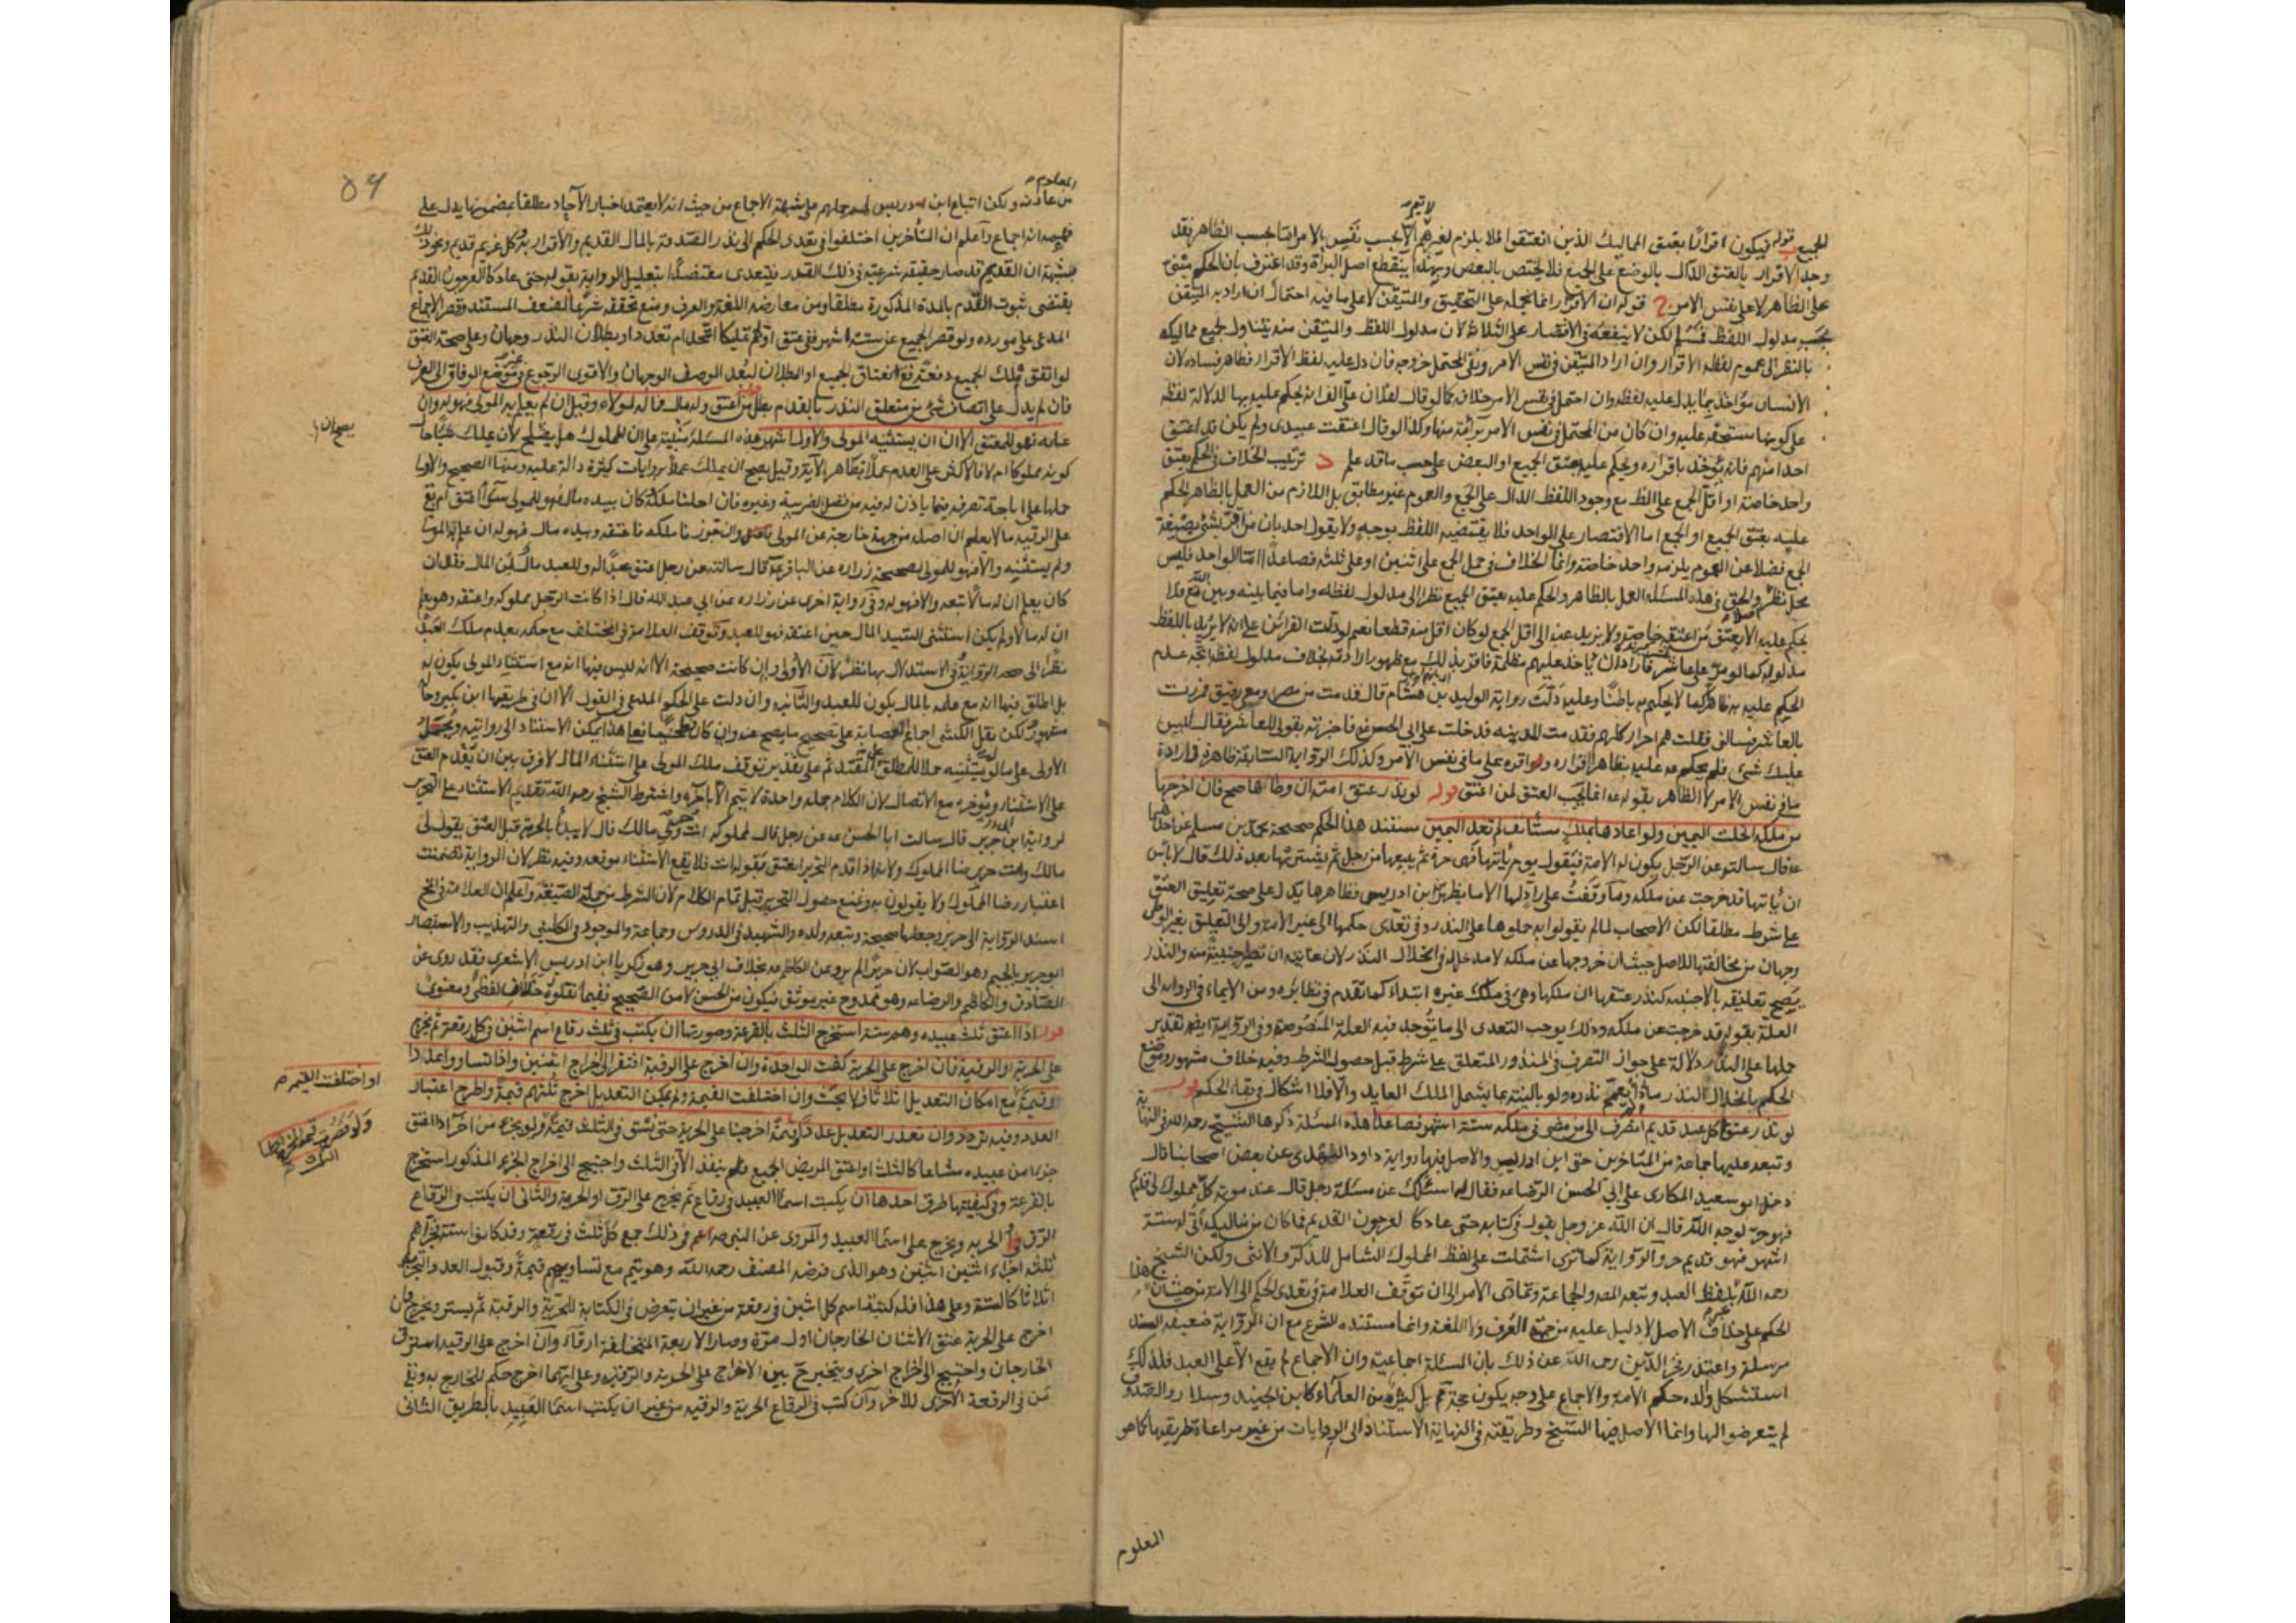 الجميع قوله فيكون اقرارًا بعتق المماليك الذين انعتقوا لئلا يلزم لغيرهم الا بحسب نفس الامر اما بحسب الظاهر فقد
لا يتم
وجد الاقرار بالعتق الدال بالوضع على الجميع فلا يختص بالبعض وبهذا ينقطع اصل البراة وقد اعترف بان الحكم مبنى
على الظاهر لا على نفس الامر قوله ان الاقرار انما نحمله على التحقيق والمتيقن لا على ما فيه احتمال ان اراد به المتيقن
بحسب مدلول اللفظ فمسلم لكن لا ينفعه في الاقتصار على الثلاثة لان مدلول اللفظ والمتيقن منه يتناول جميع مماليكه
بالنظر الى عموم لفظه الاقرار وان اراد المتيقن في نفس الامر ونفى المحتمل خروجه فان دل عليه لفظ الاقرار فظاهر فساده لان
الانسان مؤاخذ بما يدل عليه لفظه وان احتمل في نفس الامر خلافه كما لو قال لفلان على الف انه يحكم عليه بها لدلالة لفظه
على كونها مستحقه عليه وان كان من المحتمل في نفس الامر براته منها وكذا لو قال اعتقت عبيدى ولم يكن قد اعتق
احدا منهم فانه يؤخذ باقراره ويحكم عليه بعتق الجميع او البعض على حسب ما قد علم د ترتيب الخلاف في الحكم بعتق
واحد خاصة او اقل الجمع على لفظ مع وجود اللفظ الدال على الجمع والعموم غير مطابق بل اللازم من العمل بالظاهر الحكم
عليه بعتق الجميع او الجمع اما الاقتصار على الواحد فلا يقتضيه اللفظ بوجه ولا يقول احد بان من اقر بشئ بصيغة
الجمع فضلا عن العموم يلزمه واحد خاصة وانما الخلاف في حمل الجمع على اثنين او على ثلثه فصاعدا اما الواحد فليس
محل نظر والحق في هذه المسئله العمل بالظاهر والحكم عليه بعتق الجميع نظرا الى مدلول لفظه واما فيما بينه وبين الله تع فلا
يحكم عليه الا بعتق من اعتقه خاصة ولا يزيد عنه الى اقل الجمع لو كان اقل منه قطعا نعم لو دلت القرائن على انه لا يريد باللفظ
مدلوله كما لو مر على عاشر فاراد ان ياخذ عليهم مظلمة فاقر بذلك مع ظهور الارادة بخلاف مدلول لفظه اتجه عدم
الحكم عليه به ظاهرا كما لا يحكم به باطنًا وعليه دلت رواية الوليد بن هشام قال قدمت من مصر ومعى رقيق فمررت
بالعاشر فسالنى فقلت هم احرار كلهم فقدمت المدينه فدخلت على ابي الحسن ع فاخبرته بقولى للعاشر فقال ليس
عليك شئ فلم يحكم عه عليه بظاهر اقراره واقره على ما في نفس الامر وكذلك الرواية السابقة ظاهرة في ارادة
ما في نفس الامر لا الظاهر بقوله عه انما يجب العتق لمن اعتق قوله لو نذر عتق امته ان وطاها صح فان اخرجها
من ملكه انحلت اليمين ولو اعادها بملك مستأنف لم تعد اليمين مستند هذا الحكم صحيحة محمد بن مسلم عن احدهما
عه قال سالته عن الرجل يكون له الامة فيقول يوم ياتيها فهى حرة ثم يبيعها من رجل ثم يشتريها بعد ذلك قال لا باس
ان ياتيها قد خرجت عن ملكه وما وقفت على راد لها الا ما يظهر من ابن ادريس فظاهرها يدل على صحة تعليق العتق
على شرط مطلقا لكن الاصحاب لما لم يقولوا به حملوها على النذر وفى تعدى حكمها الى غير الامة والى التعليق بغير الوطى
وجهان من مخالفتها للاصل حيث ان خروجها عن ملكه لا مدخل له في انحلال النذر لان غايته ان تصير اجنبية منه والنذر
يصح تعليقه بالاجنبيه كنذر عتقها ان ملكها وهى في ملك غيره ابتداء كما تقدم في نظائره ومن الايماء في الرواية الى
العلة بقوله قد خرجت عن ملكه وذلك يوجب التعدى الى ما توجد فيه العلة المنصوصة وفى الرواية ايضا على تقدير
حملها على النذر دلالة على جواز التصرف في المنذور المتعلق على شرط قبل حصول الشرط وفيه خلاف مشهور وموضع
الحكم بانحلال النذر ما اذا لم يعمم نذره ولو بالنية بما يشمل الملك العايد والا فلا اشكال في بقاء الحكم قوله
لو نذر عتق كل عبد قديم انصرف الى من مضى في ملكه ستة اشهر فصاعدا هذه المسئلة ذكرها الشيخ رحمه الله في النهاية
وتبعه عليها جماعة من المتاخرين حتى ابن ادريس والاصل فيها رواية داود النهدى عن بعض اصحابنا قال
دخل ابو سعيد المكارى على ابي الحسن الرضا عه فقال له اسئلك عن مسئلة رجل قال عند موته كل مملوك لى قديم
فهو حر لوجه الله قال ان الله عز وجل يقول في كتابه حتى عاد كالعرجون القديم فما كان من مماليكه اتى له ستة
اشهر فهو قديم حر والرواية كما ترى اشتملت على لفظ المملوك الشامل للذكر والانثى ولكن الشيخ
رحمه الله بلفظ العبد وتبعه المصه والجماعة وتمادى الامر الى ان توقف العلامة في تعدى الحكم الى الامة من حيث ان هذا
الحكم على خلاف الاصل لا دليل عليه من جهة العرف ولا اللغة وانما مستنده الشرع مع ان الرواية ضعيفه السند
مرسلة واعتذر فخر الدين رحمه الله عن ذلك بان المسئلة اجماعية وان الاجماع لم يقع الا على العبد فلذلك
استشكل والده حكم الامة والاجماع على وجه يكون حجة لم يتم بل كثير من العلماء كابن الجنيد وسلار والصدوق
لم يتعرضوا لها وانما الاصل فيها الشيخ وطريقته في النهاية الاستناد الى الروايات من غير مراعاة طريقها كما هو
المعلوم
٥٦
المعلوم
من عادته ولكن اتباع ابن ادريس له حملهم على شبهة الاجماع من حيث انه لا يعتمد اخبار الآحاد مطلقا بمضمونها يدل على
فهمه انه اجماع واعلم ان المتأخرين اختلفوا في تعدى الحكم الى نذر الصدقة بالمال القديم والاقرار به وكل غريم قديم ونحو ذلك
بشبهة ان القديم قد صار حقيقة شرعية في ذلك القدر فيتعدى معتضدا بتعليل الرواية بقوله حتى عاد كالعرجون القديم
يقتضى ثبوت القدم بالمدة المذكورة مطلقا ومن معارضة اللغة والعرف ومنع تحققه شرعا لضعف المستند وقصر الاجماع
المدعى على مورده ولو قصر الجميع عن ستة اشهر ففى عتق اولهم تمليكا اتحد ام تعدد او بطلان النذر وجهان وعلى صحة العتق
لو اتفق تملك الجميع دفعة ففى انعتاق الجميع او البطلان لبعد الوصف الوجهان والاقوى الرجوع في غير موضع الوفاق الى العرف
فان لم يدل على اتصاف شئ من متعلق النذر بالقدم بطل قوله من اعتق وله مال فماله لمولاه وقيل ان لم يعلم به المولى فهو له وان
علمه فهو للمعتق الا ان يستثنيه المولى والاول اشهر هذه المسئلة مبنية على ان المملوك هل يصلح لان يملك شيئا حال
كونه مملوكا ام لا فالاكثر على العدم عملا بظاهر الآية وقيل يصح ان يملك عملا بروايات كثيرة دالة عليه ومنها الصحيح والاولى
حملها على اباحة تصرفه فيما ياذن له فيه من فضل الضريبة وغيره فان احلنا ملكه كان بيده مال فهو للمولى سواء اعتق ام بقى
على الرقية ما لا يعلم ان اصله من جهة خارجة عن المولى وان جوزنا ملكه فاعتقه وبيده مال فهو له ان علم به المولى
ولم يستثنه والا فهو للمولى لصحيحة زراره عن الباقر عه قال سالته عن رجل اعتق عبدا له وللعبد مال لمن المال فقال ان
كان يعلم ان له مالا تبعه والا فهو له وفى رواية اخرى عن زراره عن ابي عبد الله قال اذا كاتب الرجل مملوكه واعتقه وهو يعلم
ان له مالا ولم يكن استثنى السيد المال حين اعتقه فهو للعبد وتوقف العلامة في المختلف مع حكمه بعدم ملك العبد
نظرا الى صحه الرواية وفي الاستدلال بها نظر لان الاولى وان كانت صحيحة الا انه ليس فيها انه مع استثناء المولى يكون له
بل اطلق فيها انه مع علمه بالمال يكون للعبد والثانيه وان دلت على الحكم المدعى في القول الا ان في طريقها ابن بكير وحاله
مشهور لكن نقل الكشى اجماع العصابة على تصحيح ما يصح عنه وان كان فطحيا فعلى هذا يمكن الاستناد الى روايته ويحمل
الاولى على ما لو لم يستثنيه حملا للمطلق على المقيد ثم على تقدير توقف ملك المولى على استثناء المال لا فرق بين ان يقدم العتق
على الاستثناء ويؤخره مع الاتصال لان الكلام جملة واحدة لا يتم الا بآخره واشترط الشيخ رحمه الله تقديم الاستثناء على التحرير
لرواية ابى جرير قال سالت ابا الحسن عه عن رجل قال لمملوكه انت حر ولى مالك قال لا يبدأ بالحرية قبل العتق يقول لى
مالك وانت حر برضا المملوك ولانه اذا قدم التحرير انعتق بقوله انت فلا يقع الاستثناء موقعه وفيه نظر لان الرواية تضمنت
اعتبار رضا المملوك ولا يقولون به ونمنع حصول التحرير قبل تمام الكلام لان الشرط من جملة الصيغة واعلم ان العلامة في المخ
اسند الرواية الى حريز وجعلها صحيحة وتبعه ولده والشهيد في الدروس وجماعة والموجود في الكافى والتهذيب والاستبصار
ابو جرير بالجيم وهو الصواب لان حريزا لم يرو عن الكاظم عه بخلاف ابي جرير وهو زكريا ابن ادريس الاشعرى فقد روى عن
الصادق والكاظم والرضا عه وهو ممدوح غير موثق فيكون من الحسن لا من الصحيح ففيما نقلوه خلاف لفظى ومعنوى
قوله اذا اعتق ثلث عبيده وهم ستة استخرج الثلث بالقرعة وصورتها ان يكتب في ثلث رقاع اسم اثنين في كل رقعة ثم يخرج
على الحرية او الرقية فان اخرج على الحرية كفت الواحدة وان اخرج على الرقية افتقر الى اخراج اثنين واذا تساووا عددا
وقيمة مع امكان التعديل اثلاثا فلا بحث وان اختلفت القيمة ولم يمكن التعديل اخرج ثلثهم قيمة واطرح اعتبار
العدد وفيه تردد وان تعذر التعديل عددا وقيمة اخرجنا على الحرية حتى نستوفى الثلث قيمة ولو بجزء من آخر اذا اعتق
جزءا من عبيده مشاعا كالثلث او اعتق المريض الجميع فلم ينفذ الا في الثلث واحتيج الى اخراج الجزء المذكور استخرج
بالقرعة وفى كيفيتها طرق احدها ان يكتب اسماء العبيد في رقاع ثم يخرج على الرق او الحرية والثانى ان يكتب في الرقاع
الرق او الحرية ويخرج على اسماء العبيد والمروى عن النبي صه اعم في ذلك جمع كل ثلث في رقعة وقد كانوا ستة فجزأهم
ثلثه اجزاء اثنين اثنين وهو الذى فرضه المصنف رحمه الله وهو يتم مع تساويهم قيمة وقبول العدد التجزئة
اثلاثا كالستة وعلى هذا فله كتبة اسم كل اثنين في رقعة من غير ان يتعرض في الكتابة للحرية والرقية ثم يستر ويخرج فان
اخرج على الحرية عتق الاثنان الخارجان اول مرة وصار الاربعة المتخلفة ارقاء وان اخرج على الرقية استرق
الخارجان واحتيج الى اخراج اخرى ويتخير ح بين الاخراج على الحرية والرقية وعلى ايهما اخرج حكم للخارج به وبقى
من في الرقعة الاخرى للاخر وان كتب في الرقاع الحرية والرقيه من غير ان يكتب اسماء العبيد بالطريق الثانى
او اختلفت القيم